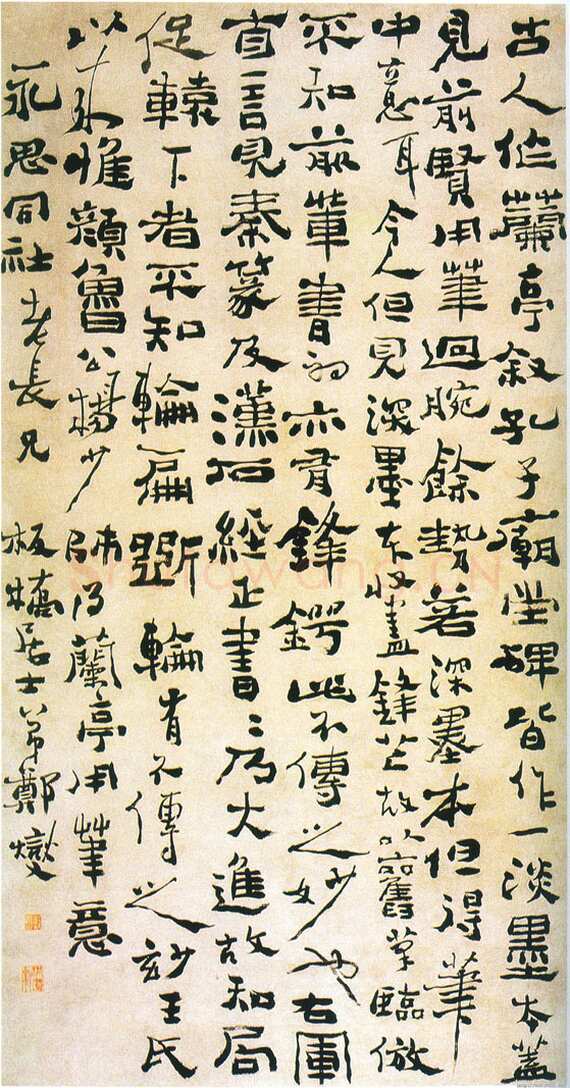 古人作蘭亭叙孔子廟堂碑皆作一淡墨本蓋
見前賢用筆迴腕餘勢若深墨本但得筆
中意耳今人但見深墨本收盡鋒芒故以舊筆臨倣
不知前輩書初亦有鋒鍔此不傳之妙也右軍
自言見秦篆及漢石經正書〻乃大進故知局
促轅下者不知輪扁斲輪有不傳之妙王氏
以来惟顏魯公楊少師得蘭亭用筆意
永思同社老長兄 板橋居士弟鄭燮